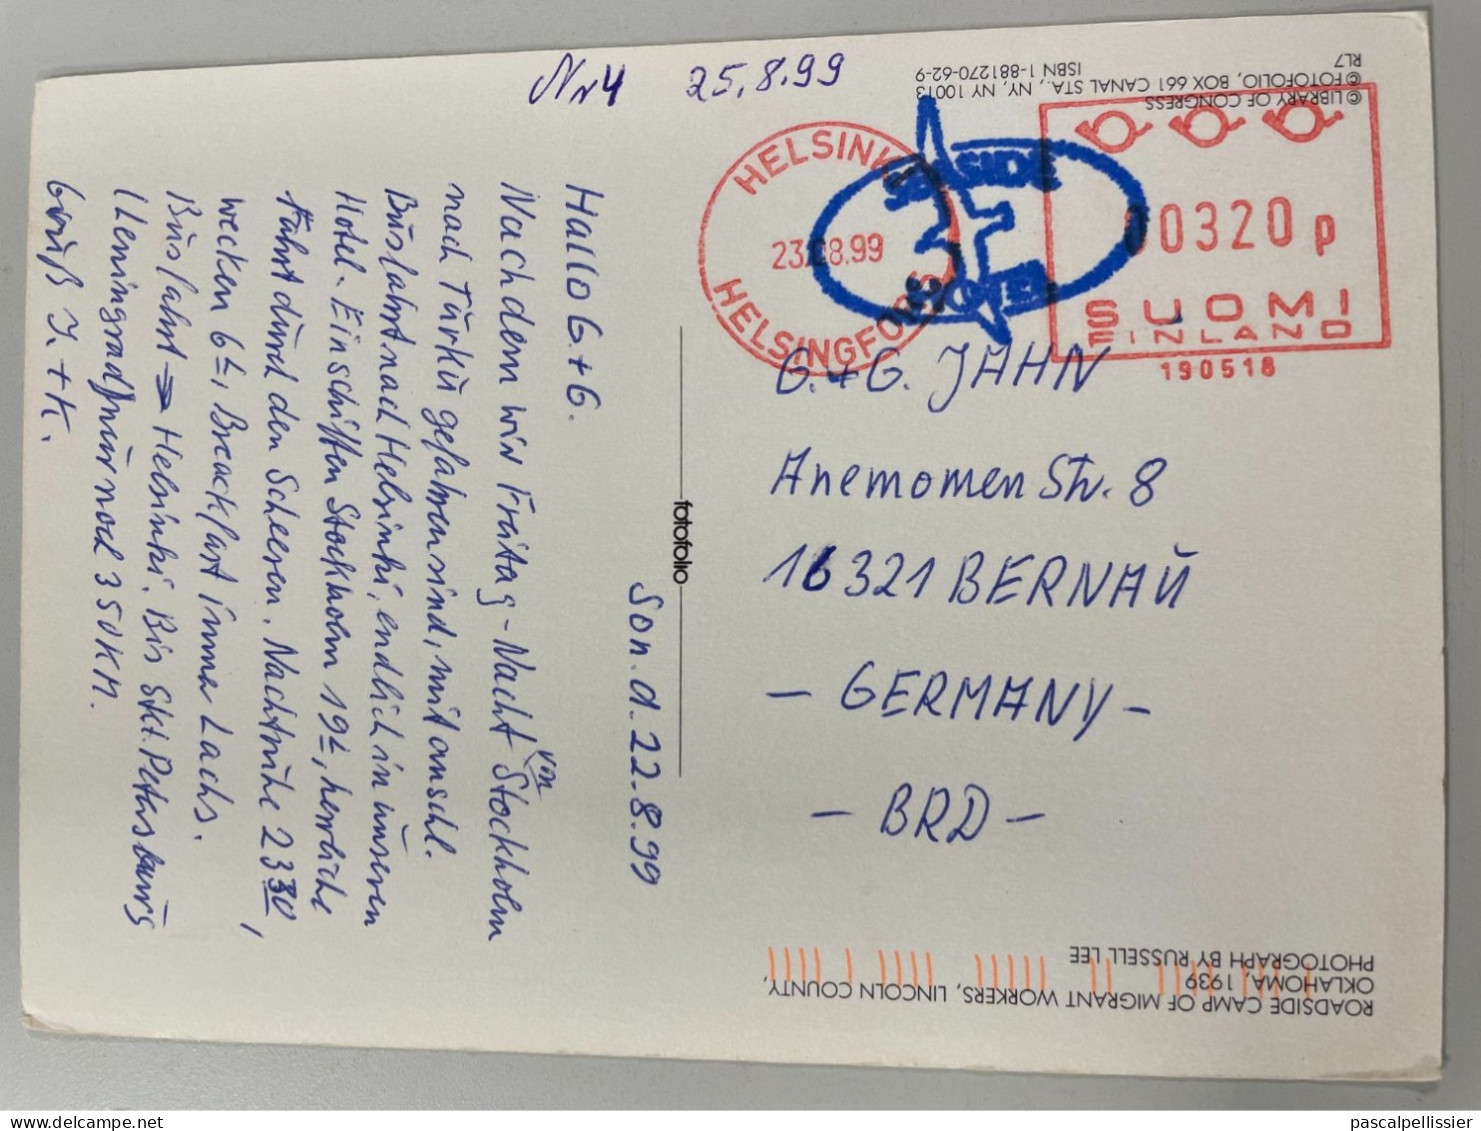 Nr 4 25.8.99
© LIBRARY OF CONGRESS
© FOTOFOLIO, BOX 661 CANAL STA., NY, NY 10013
ISBN 1-881270-62-9
RL7
HELSINKI
23.08.99
HELSINGFORS
SEASIDE
HOTEL
00320 p
SUOMI
FINLAND
190518
G. + G. JAHN
Anemomen Str. 8
16321 BERNAŬ
- GERMANY -
- BRD -
fotofolio
Son. d. 22.8.99
Hallo G + G.
Nachdem wir Freitag - Nacht von Stockholm
nach Tŭrkŭ gefahren sind, mit anschl.
Bŭsfahrt nach Helsinki, endlich in ŭnseren
Hotel. Einschiffen Stockholm 19⁰⁰, herrliche
Fahrt dŭrch den Scheeren. Nachtrŭhe 23³⁰,
wecken 6⁰⁰, Breackfast immer Lachs.
Bŭsfahrt → Helsinki. Bis Skt. Petersbŭrg
(Leningrad) nŭr noch 350 KM.
Grŭß J. + K.
ROADSIDE CAMP OF MIGRANT WORKERS, LINCOLN COUNTY,
OKLAHOMA, 1939
PHOTOGRAPH BY RUSSELL LEE
delcampe.net
pascalpellissier